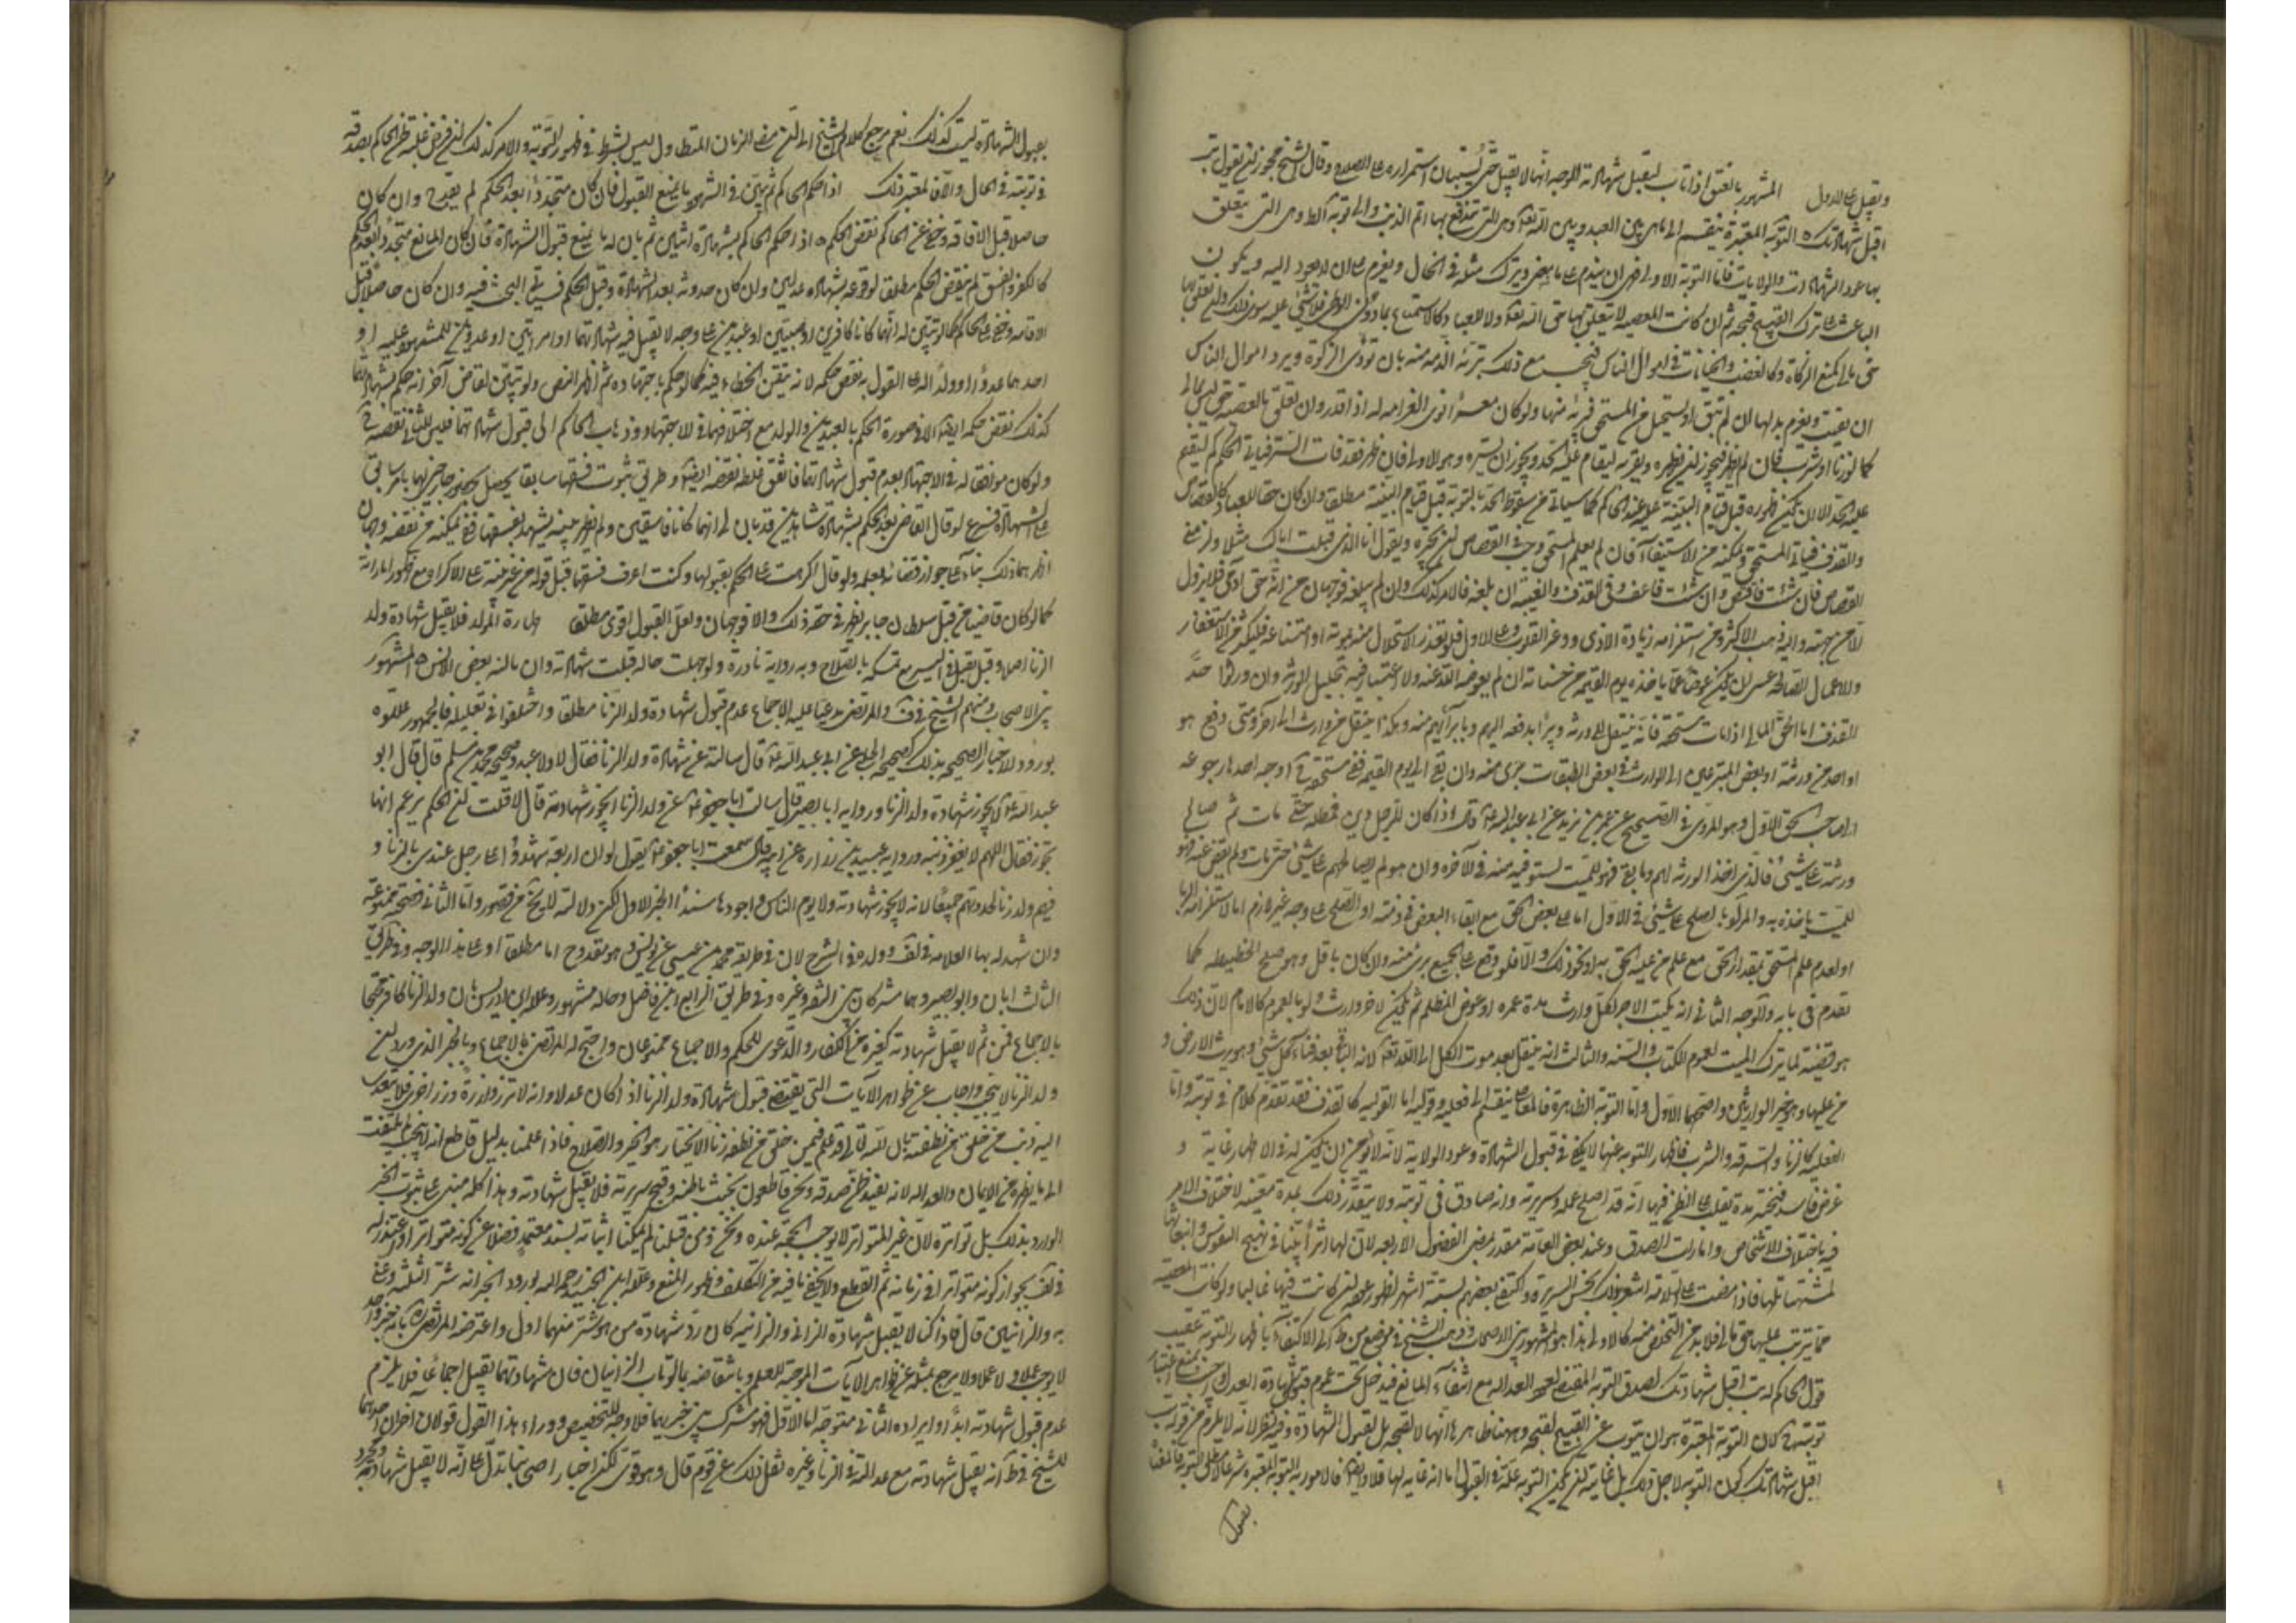 ويقبل على الاول المشهور بالفسق اذا تاب لتقبل شهادته الوجه انها لا تقبل حتى يستبان استمراره على الصلاح وقال الشيخ يجوز ان يقول تب
اقبل شهادتك التوبة المعتبرة تنقسم الى ما هي بين العبد وبين الله تعالى وهي التي تندفع بها اثم الذنب والى توبة الظاهر وهي التي يتعلق
بها عود الشهادات والولايات فاما التوبة الاولى فهي ان يندم على ما مضى ويترك مثله في الحال ويعزم على ان لا يعود اليه ويكون
الباعث على ترك القبيح قبحه ثم ان كانت المعصية لا يتعلق بها حق الله تعالى ولا للعباد كالاستمتاع بما دون الوطي فلا شيء عليه سوى ذلك وان تعلق بها
حق مالي كمنع الزكاة وكالغصب والجنايات في اموال الناس فيجب مع ذلك تبرئة الذمة منه بان تؤدى الزكوة ويرد اموال الناس
ان بقيت ويغرم بدلها ان لم تبق او يستحل من المستحق فيبرئه منها ولو كان معسرا نوى الغرامة له اذا قدر وان تعلق بالمعصية حق ليس بمالي
كما لو زنا او شرب فان لم يظهر فيجوز ان يظهره ويقر به ليقام عليه الحد ويجوز ان يستره وهو الاولى فان ظهر فقد فات الستر فياتي الحاكم ليقيم
عليه الحد الا ان يكون ظهوره قبل قيام البينة عليه عند الحاكم كما سياتي من سقوط الحد بالتوبة قبل قيام البينة مطلقا وان كان حقا للعباد كالقصاص
والقذف فياتي المستحق ويمكنه من الاستيفاء فان لم يعلم المستحق وجب في القصاص ان يخبره ويقول انا الذي قتلت اباك مثلا ولزمني
القصاص فان شئت فاقتص وان شئت فاعف وفي القذف والغيبة ان بلغه فالامر كذلك وان لم يبلغه فوجهان من انه حق ادمي فلا يزول
الا من جهته واليه ذهب الاكثر ومن استلزامه زيادة الاذى ووغر القلوب وعلى الاول فلو تعذر الاستحلال منه بموته او امتناعه فليكثر من الاستغفار
والاعمال الصالحة عسى ان يكون عوضا عما ياخذه يوم القيمة من حسناته ان لم يعوضه الله عنه ولا اعتبار فيه بتحليل الورثة وان ورثوا حد
القذف اما الحق المالي اذا مات مستحقه فانه ينتقل الى ورثته ويبرأ بدفعه اليهم وبابرائهم منه وهكذا ينتقل من وارث الى آخر ومتى دفع هو
او احد من ورثته او بعض المتبرعين الى الوارث في بعض الطبقات برئ منه وان بقي الى يوم القيمة ففي مستحقه اوجه احدها رجوعه
الى صاحب الحق الاول وهو المروي في الصحيح عن عمر بن يزيد عن ابي عبد الله ع قال اذا كان للرجل دين فمطله حتى مات ثم صالح
ورثته على شيء فالذي اخذ الورثة لهم وما بقي فهو للميت يستوفيه منه في الآخرة وان هو لم يصالحهم على شيء حتى مات ولم يقض عنه فهو
للميت ياخذه به والمراد بالصلح على شيء في الاول اما على بعض الحق مع ابقاء البعض في ذمته او الصلح على وجه غير لازم
او لعدم علم المستحق بمقدار الحق مع علم من عليه الحق به او نحو ذلك والا فلو وقع على الجميع برئ منه وان كان باقل وهو صلح الحطيطة كما
تقدم في بابه والوجه الثاني انه يكتب الاجر لكل وارث مدة عمره او عوض المظلم ثم يكون لاخر وارث ولو بالعموم كالامام لان ذلك
هو قضية لما يترك الميت لعموم الكتاب والسنة والثالث انه ينتقل بعد موت الكل الى الله تعالى لانه الباقي بعد فناء كل شيء وهو يرث الارض و
من عليها وهو خير الوارثين واصحها الاول واما التوبة الظاهرة فالمعاصي تنقسم الى فعلية وقولية اما القولية كالقذف فقد تقدم كلام في توبته واما
الفعلية كالزنا والسرقة والشرب فاظهار التوبة عنها لا يكفي في قبول الشهادة وعود الولاية لانه لا يؤمن ان يكون له في الاظهار غاية و
غرض فاسد فيختبر مدة يغلب على الظن فيها انه قد اصلح عمله وسريرته وانه صادق في توبته ولا يتقدر ذلك بمدة معينة لاختلاف الامر
فيه باختلاف الاشخاص وامارات الصدق وعند بعض العامة مقدر بمضي الفصول الاربعة لان لها اثرا بينا في تهييج النفوس وانبعاثها
لمشتهياتها فاذا مضت على السلامة اشعر ذلك بحسن السريرة واكتفى بعضهم بستة اشهر لظهور عدالته ان كانت فيها غالبا ولو كانت المعصية
مما يترتب عليها حق مالي فلا بد من التخلص منه كالاولى هذا هو المشهور بين الاصحاب وذهب الشيخ في موضع من ط الى الاكتفاء باظهار التوبة عقيب
قول الحاكم له تب اقبل شهادتك لصدق التوبة المقتضي لعود العدالة مع انتفاء المانع فيدخل تحت عموم قبول شهادة العدل
توبته لان التوبة المعتبرة هي ان يتوب عن القبيح لقبحه وههنا ظاهرها انها لا لقبحه بل لقبول الشهادة وفيه نظر لانه لا يلزم من قوله تب
اقبل شهادتك كون التوبة لاجل ذلك بل غايته ان تكون التوبة علة في القبول اما انه غاية لها فلا
بقبول
بقبول الشهادة ليست كذلك نعم مرجع كلام الشيخ الى ان مضي الزمان المتطاول ليس بشرط في ظهور التوبة والامر كذلك ان فرض غلبة ظن الحاكم بصدقه
في توبته في الحال والا فالمعتبر ذلك اذا حكم الحاكم ثم تبين في الشهود ما يمنع القبول فان كان متجددا بعد الحكم لم يقدح وان كان
حاصلا قبل الاقامة وخفي عن الحاكم نقض الحكم اذا حكم الحاكم بشهادة اثنين ثم بان له ما يمنع قبول الشهادة فان كان المانع متجددا بعد الحكم
كالكفر والفسق لم ينقض الحكم مطلقا لوقوعه بشهادة عدلين وان كان حدوثه بعد الشهادة وقبل الحكم فسياتي البحث فيه وان كان حاصلا قبل
الاقامة وخفي على الحاكم كما لو تبين له انهما كانا كافرين او صبيين او عبدين على وجه لا يقبل فيه شهادتهما او امراتين او عدوين للمشهود عليه او
احدهما عدوا او ولدا له على القول به نقض حكمه لانه تيقن الخطاء فيه كما لو حكم باجتهاده ثم ظهر النص ولو تبين لقاض آخر انه حكم بشهادتهما
كذلك نقض حكمه ايضا الا في صورة الحكم بالعبدين والولد مع اختلافهما في الاجتهاد وذهاب الحاكم الى قبول شهادتهما فليس للثاني نقضه
ولو كان موافقا له في الاجتهاد بعدم قبول شهادتهما فاتفق غلطه نقضه ايضا وطريق ثبوت فسقهما سابقا يحصل بحضور جارحين لهما بامر سابق
على الشهادة فرع لو قال القاضي بعد الحكم بشهادة شاهدين قد بان لي انهما كانا فاسقين ولم تظهر بينة تشهد بفسقهما ففي تمكنه من نقضه وجهان
اظهرهما ذلك بناء على جواز قضائه بعلمه ولو قال اكرهت على الحكم بقبولهما وكنت اعرف فسقهما قبل قوله من غير بينة على الاكراه مع ظهور اماراته
كما لو كان قاضيا من قبل سلطان جاير يظهر في حقه ذلك والا فوجهان ولعل القبول اقوى مطلقا طهارة المولد فلا يقبل شهادة ولد
الزنا اصلا وقيل تقبل في اليسير مع تمسكه بالصلاح وبه رواية نادرة ولو جهلت حاله قبلت شهادته وان نالته بعض الالسن المشهور
بين الاصحاب ومنهم الشيخ في ف والمرتضى مدعيا عليه الاجماع عدم قبول شهادة ولد الزنا مطلقا واختلفوا في تعليله فالجمهور عللوه
بورود الاخبار الصحيحة بذلك كصحيحة الحلبي عن ابي عبد الله ع قال سالته عن شهادة ولد الزنا فقال لا ولا عبد وصحيحة محمد بن مسلم قال قال ابو
عبد الله ع لا يجوز شهادة ولد الزنا ورواية ابي بصير قال سالت ابا جعفر ع عن ولد الزنا ايجوز شهادته قال لا قلت ان الحكم يزعم انها
تجوز فقال اللهم لا تغفر ذنبه ورواية عبيد بن زرارة عن ابيه قال سمعت ابا جعفر ع يقول لو ان اربعة شهدوا على رجل عندي بالزنا و
فيهم ولد زنا لحددتهم جميعا لانه لا يجوز شهادته ولا يؤم الناس واجودها سندا الخبر الاول لكن دلالته لا يخلو من قصور واما الثاني فصحته ممنوعة
وان شهد له بها العلامة في لف وولده في الشرح لان في طريقه محمد بن عيسى عن يونس وهو مقدوح اما مطلقا او على هذا الوجه وفي طريق
الثالث ابان وابو بصير وهما مشتركان بين الثقة وغيره وفي طريق الرابع ابن فضال وحاله مشهور وعلل ابن ادريس بان ولد الزنا كافر محتجا
بالاجماع فمن ثم لا يقبل شهادته كغيره من الكفار والدعوى للحكم والاجماع ممنوعان واحتج له المرتضى بالاجماع وبالخبر الذي ورد ان
ولد الزنا لا ينجب واجاب عن ظواهر الآيات التي يقتضي قبول شهادة ولد الزنا اذا كان عدلا وانه لا تزر وازرة وزر اخرى فلا يتعدى
اليه ذنب من خلق من نطفته بان الله تعالى قد علم فيمن خلق من نطفة زنا الا يختار هو الخير والصلاح فاذا علمنا بدليل قاطع انه لا ينجب لم نلتفت
الى ما يظهره من الايمان والعدالة لانه يفيد ظن صدقه ونحن قاطعون بخبث باطنه وقبح سريرته فلا يقبل شهادته وهذا كله مبني على ثبوت الخبر
الوارد بذلك بل تواتره لان غير المتواتر لا يوجب الحجة عنده ونحن ومن قبلنا لم يمكننا اثباته بسند معتمد فضلا عن كونه متواترا واعتذر له
في لف بجواز كونه متواترا في زمانه ثم انقطع ولا يخفى ما فيه من التكلف وظهور المنع وعلله ابن الجنيد رحمه الله بورود الخبر انه شر الثلثة وعنى
به والزانيين قال فاذا كنا لا نقبل شهادة الزاني والزانية كان رد شهادة من هو شر منهما اولى واعترضه المرتضى بانه خبر واحد
لا يوجب علما ولا عملا ولا يرجع بمثله عن ظواهر الآيات الموجبة للعلم وبانتقاضه بالتوبة الزانيان فان شهادتهما تقبل اجماعا فلا يلزم
عدم قبول شهادته ابدا وايراده الثاني متوجه اما الاول فهو مشترك بين خبريهما فلا وجه للتخصيص ووراء هذا القول قولان آخران احدهما
للشيخ في ط انه يقبل شهادته مع عدالته في الزنا وغيره نقل ذلك عن قوم قال وهو قوي لكن اخبار اصحابنا تدل على انه لا يقبل شهادته